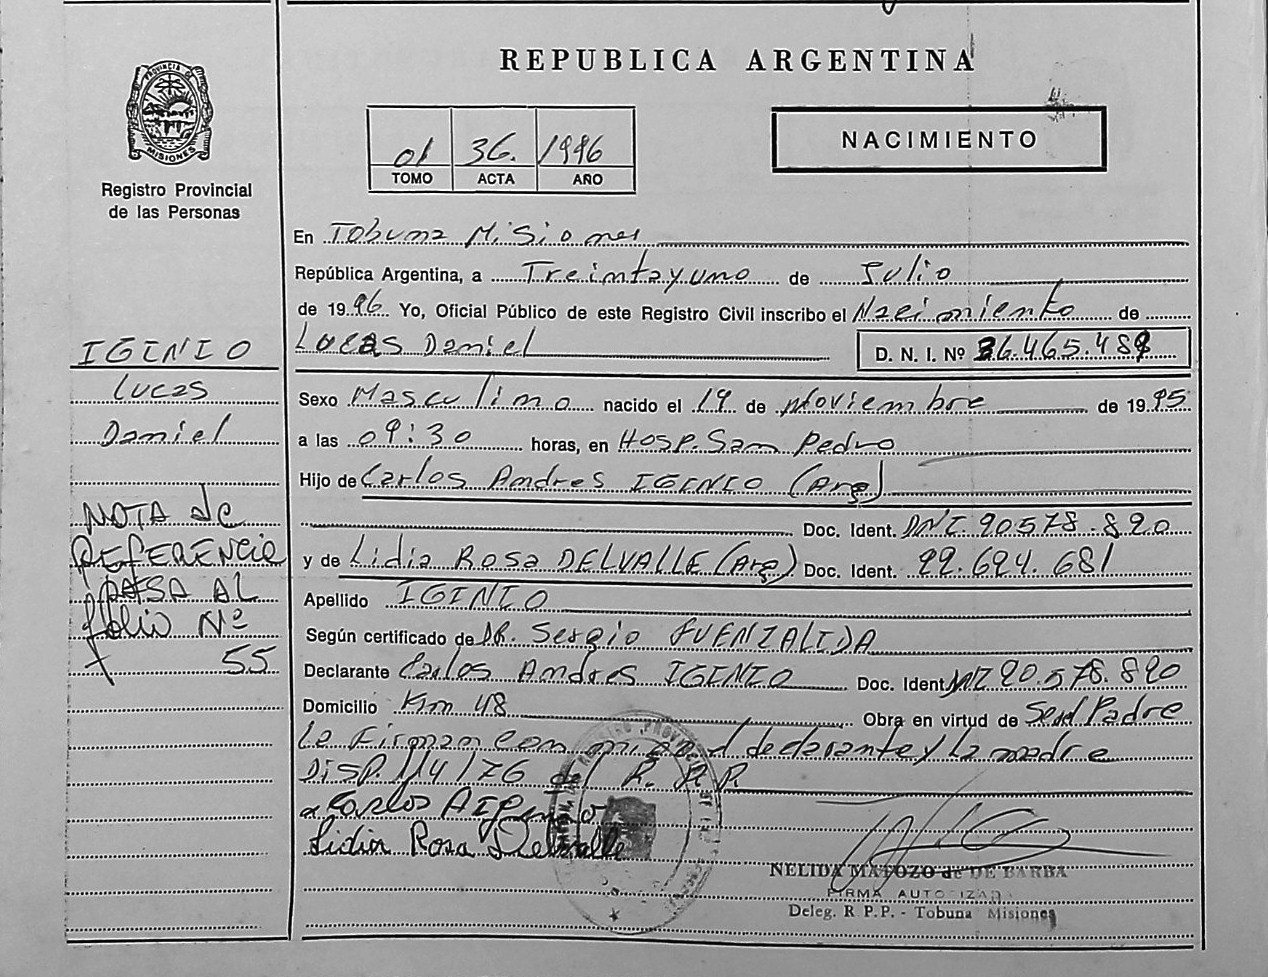 REPUBLICA ARGENTINA
PROVINCIA DE
MISIONES
Registro Provincial
de las Personas
01 36. 1996
TOMO ACTA AÑO
NACIMIENTO
En Tobuna Misiones
República Argentina, a Treintayuno de Julio
de 1996 Yo, Oficial Público de este Registro Civil inscribo el Nacimiento de
Lucas Daniel D. N. I. Nº 36.465.48
Sexo Masculino nacido el 19 de Noviembre de 1995
a las 09:30 horas, en Hosp. San Pedro
Hijo de Carlos Andres IGINIO (Arg)
Doc. Ident. DNI. 20.578.820
y de Lidia Rosa DELVALLE (Arg) Doc. Ident. 22.624.681
Apellido IGINIO
Según certificado de DR. Sergio FUENZALIDA
Declarante Carlos Andres IGINIO Doc. Ident. DNI 20.578.820
Domicilio Km 48 Obra en virtud de Ser el Padre
Le Firman con migo el declarante y la madre
DISP. 114/76 del R. P. P.
Carlos A Iginio
Lidia Rosa Delvalle
NELIDA MATOZO de DE BARBA
FIRMA AUTORIZADA
Deleg. R P.P. - Tobuna Misiones
IGINIO
Lucas
Daniel
NOTA de
REFERENCIA
PASA AL
folio Nº
55